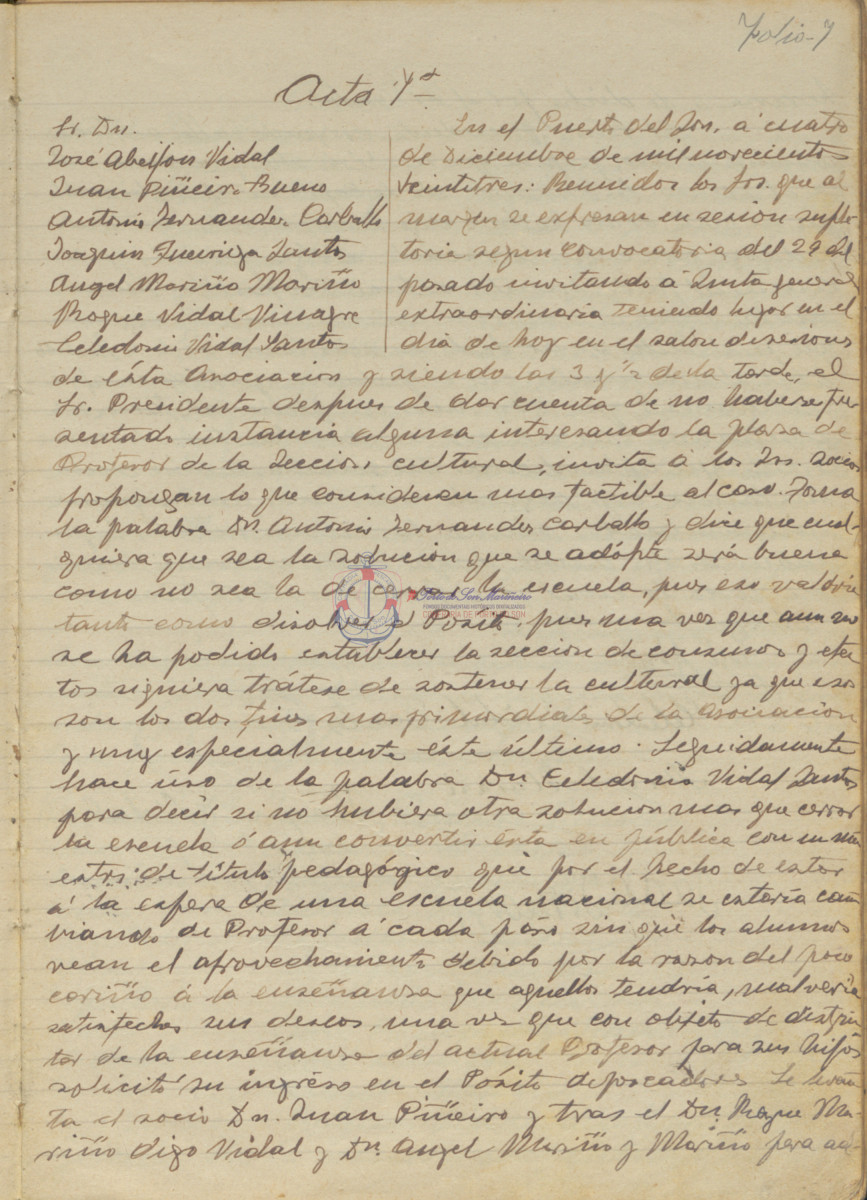 Folio-7
Acta 7ª
Sr. Dn.
José Abeijon Vidal
Juan Piñeiro Bueno
Antonio Fernandez Carballo
Joaquin Santos
Angel Mariño Mariño
Roque Vidal Vinagre
Celedonio Vidal Santos
En el Puerto del Son, á cuatro
de Diciembre de mil novecientos
veintitres: Reunidos los Srs. que al
margen se expresan en sesion suple-
toria segun convocatoria del 29 del
pasado invitando á Junta general
extraordinaria teniendo lugar en el
dia de hoy en el salon de sesiones
de ésta Asociacion y siendo las 3 y ½ de la tarde, el
Sr. Presidente despues de dar cuenta de no haberse pre-
sentado instancia alguna interesando la plaza de
Profesor de la Seccion cultural, invita á los Srs. socios
propongan lo que consideren mas factible al caso. Toma
la palabra Dn. Antonio Fernandez Carballo y dice que cual-
quiera que sea la solucion que se adopte será buena
como no sea la de cerrar la escuela, pues eso valdria
tanto como disolver el Pósito, pues una vez que aun no
se ha podido establecer la seccion de consumos y efec-
tos siquiera trátese de sostener la cultural ya que esos
son los dos fines mas primordiales de la Asociacion
y muy especialmente éste último. Seguidamente
hace uso de la palabra Dn. Celedonio Vidal Santos
para decir si no hubiera otra solucion mas que cerrar
la escuela ó aun convertir ésta en pública con un ma-
estro de título pedagógico que por el hecho de estar
á la espera de una escuela nacional se estaría cam-
biando de Profesor á cada paso sin que los alumnos
vean el aprovechamiento debido por la razon del poco
cariño á la enseñanza que aquellos tendría, mal vería
satisfechos sus deseos, una vez que con objeto de disfru-
tar de la enseñanza del actual Profesor para sus hijos
solicitó su ingreso en el Pósito de pescadores. Se levan-
ta el socio Dn. Juan Piñeiro y tras el Dn. Roque Ma-
riño digo Vidal y Dn. Angel Mariño y Mariño para
Porto do Son Mariñeiro